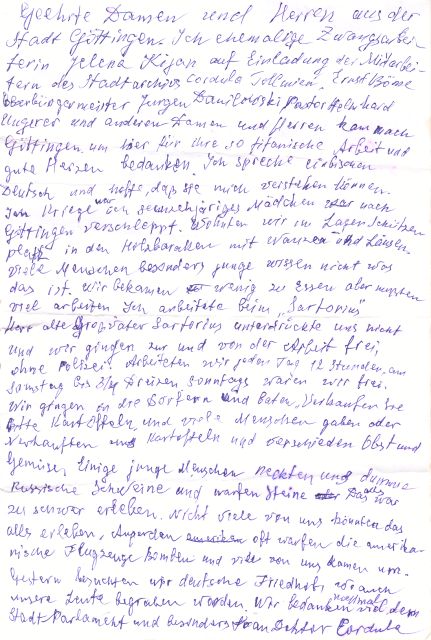 Geehrte Damen und Herren aus der
Stadt Göttingen. Ich ehemalige Zwangsarbei-
terin Jelena Kijan auf Einladung der Mitarbei-
tern des Stadtarchivs Cordula Tollmien, Ernst Böhme
Oberbürgermeister Jurgen Danilowski Pastor
Ungerer und anderen Damen und Herren kam nach
Göttingen, um hier für ihre so titanische Arbeit und
gute Herzen bedanken. Ich spreche einbischen
Deutsch und hoffe, daß sie mich verstehen können.
Im Kriege war ich jähriges Mädchen nach
Göttingen verschleppt. Wohnten wir im Lager Schützen
platz in den Holzbaraken mit Wanzen und Läusen.
Viele Menschen besonders junge wissen nicht was
das ist. Wir bekamen wenig zu Essen aber mussten
viel arbeiten Ich arbeitete beim „Sartorius"
Herr alte Großvater Sartorius unterdrückte uns nicht
und wir gingen zur und von der Arbeit frei,
ohne Polizei. Arbeiteten wir jeden Tag 12 Stunden, am
Samstag bis Sonntags waren wir frei.
Wir gingen in die Dörfern und baten, Verkaufen Sie
bitte Kartoffeln, und viele Menschen gaben oder
verkauften uns Kartoffeln und verschieden Obst und
Gemüse, Einige junge Menschen neckten uns dumme
Russische Schweine und warfen Steine Das alles war
zu schwer erleben. Nicht viele von uns konnten das
alles erleben, Auserdem oft warfen die amerika-
nische Flugzeuge Bomben und viele von uns kamen um.
Gestern besuchten wir deutsche Friedhofs, wo auch
unsere Leute begraben worden. Wir bedanken nochmal viel dem
Stadt Parlament und besonders Frau Doktor Cordula